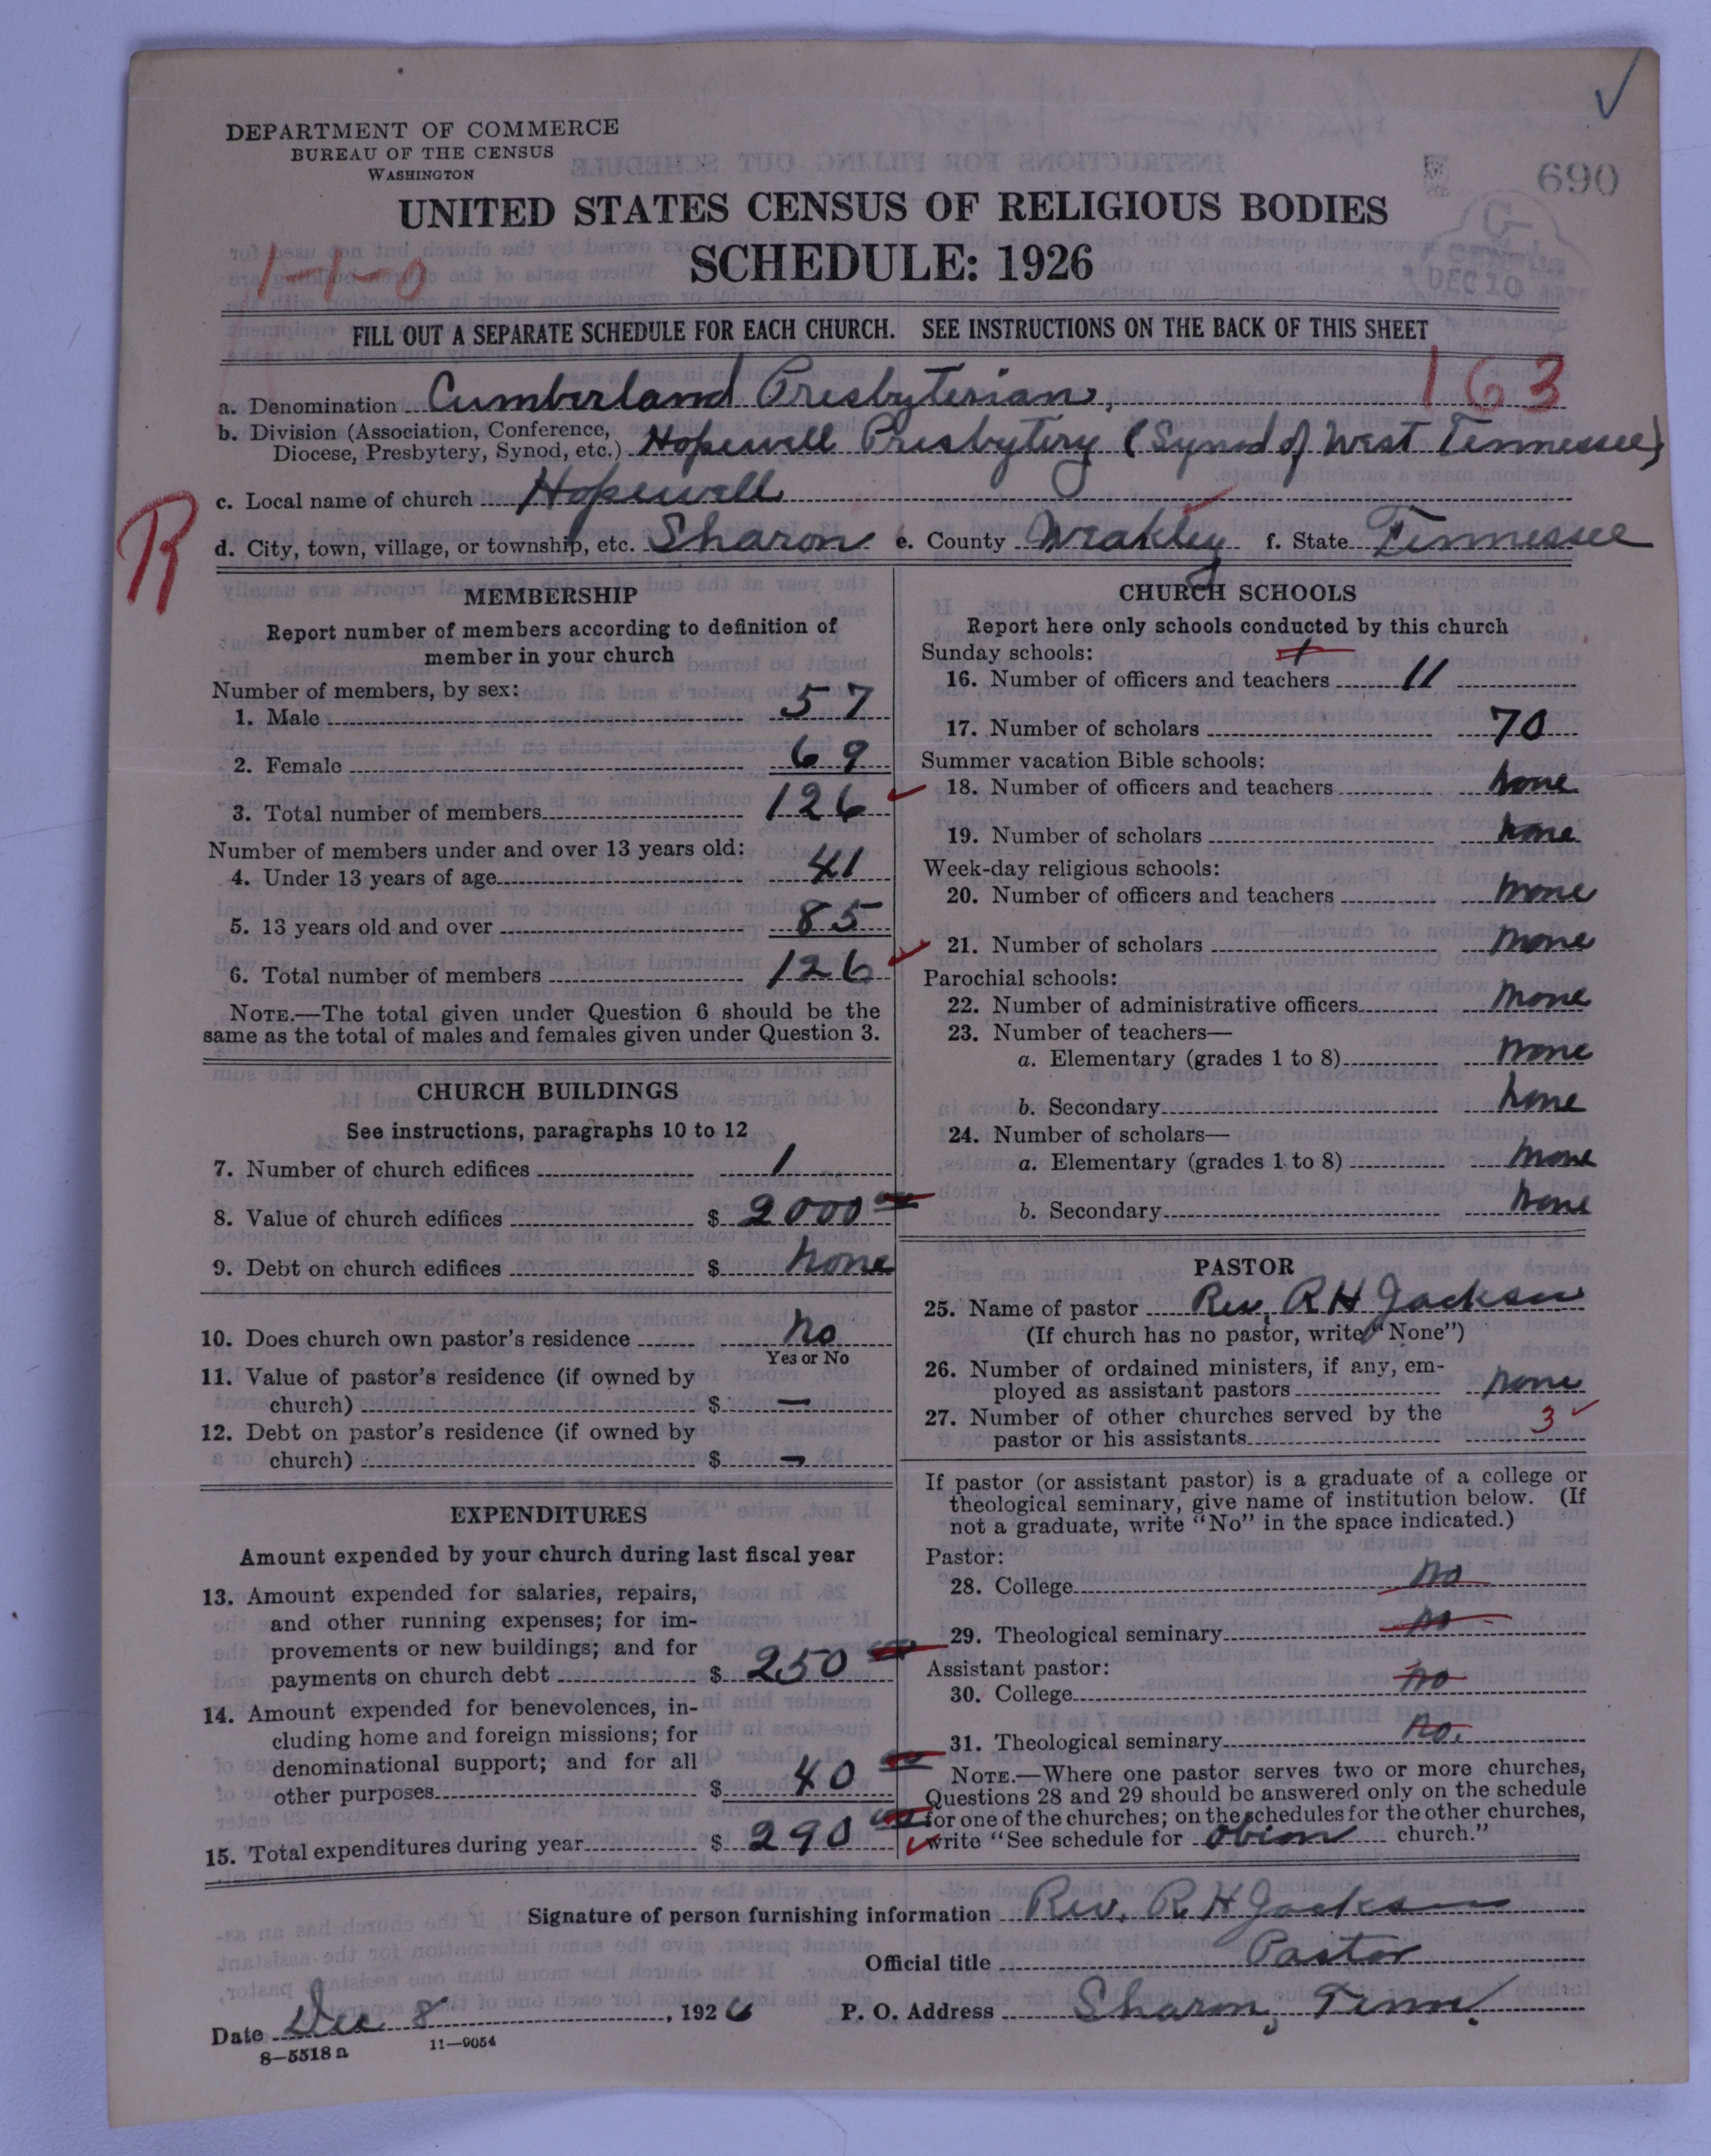 DEPARTMENT OF COMMERCE
BUREAU OF THE CENSUS
WASHINGTON
690
UNITED STATES CENSUS OF RELIGIOUS BODIES
SCHEDULE: 1926
1-1-0
DEC 10
FILL OUT A SEPARATE SCHEDULE FOR EACH CHURCH. SEE INSTRUCTIONS ON THE BACK OF THIS SHEET
163
a. Denomination Cumberland Presbyterian,
b. Division (Association, Conference, Diocese, Presbytery, Synod, etc.) Hopewell Presbytery (Synod of West Tennessee)
c. Local name of church Hopewell
R
d. City, town, village, or township, etc. Sharon e. County Weakley f. State Tennessee
MEMBERSHIP
Report number of members according to definition of
member in your church
Number of members, by sex:
1. Male 57
2. Female 69
3. Total number of members 126
Number of members under and over 13 years old:
4. Under 13 years of age 41
5. 13 years old and over 85
6. Total number of members 126
NOTE.—The total given under Question 6 should be the
same as the total of males and females given under Question 3.
CHURCH BUILDINGS
See instructions, paragraphs 10 to 12
7. Number of church edifices 1
8. Value of church edifices $ 2000
9. Debt on church edifices $ none
10. Does church own pastor's residence No
Yes or No
11. Value of pastor's residence (if owned by
church) $ —
12. Debt on pastor's residence (if owned by
church) $ —
EXPENDITURES
Amount expended by your church during last fiscal year
13. Amount expended for salaries, repairs,
and other running expenses; for im-
provements or new buildings; and for
payments on church debt $ 250
14. Amount expended for benevolences, in-
cluding home and foreign missions; for
denominational support; and for all
other purposes $ 40
15. Total expenditures during year $ 290
CHURCH SCHOOLS
Report here only schools conducted by this church
Sunday schools:
16. Number of officers and teachers 11
17. Number of scholars 70
Summer vacation Bible schools:
18. Number of officers and teachers none
19. Number of scholars none
Week-day religious schools:
20. Number of officers and teachers none
21. Number of scholars none
Parochial schools:
22. Number of administrative officers none
23. Number of teachers—
a. Elementary (grades 1 to 8) none
b. Secondary none
24. Number of scholars—
a. Elementary (grades 1 to 8) none
b. Secondary none
PASTOR
25. Name of pastor Rev. R H Jackson
(If church has no pastor, write "None")
26. Number of ordained ministers, if any, em-
ployed as assistant pastors none
27. Number of other churches served by the
pastor or his assistants 3
If pastor (or assistant pastor) is a graduate of a college or
theological seminary, give name of institution below. (If
not a graduate, write "No" in the space indicated.)
Pastor:
28. College no
29. Theological seminary no
Assistant pastor:
30. College no
31. Theological seminary no.
NOTE.—Where one pastor serves two or more churches,
Questions 28 and 29 should be answered only on the schedule
for one of the churches; on the schedules for the other churches,
write "See schedule for Obion church."
Signature of person furnishing information Rev. R H Jackson
Official title Pastor
Date Dec 8, 1926 P. O. Address Sharon, Tenn.
8—5518 a 11—9054